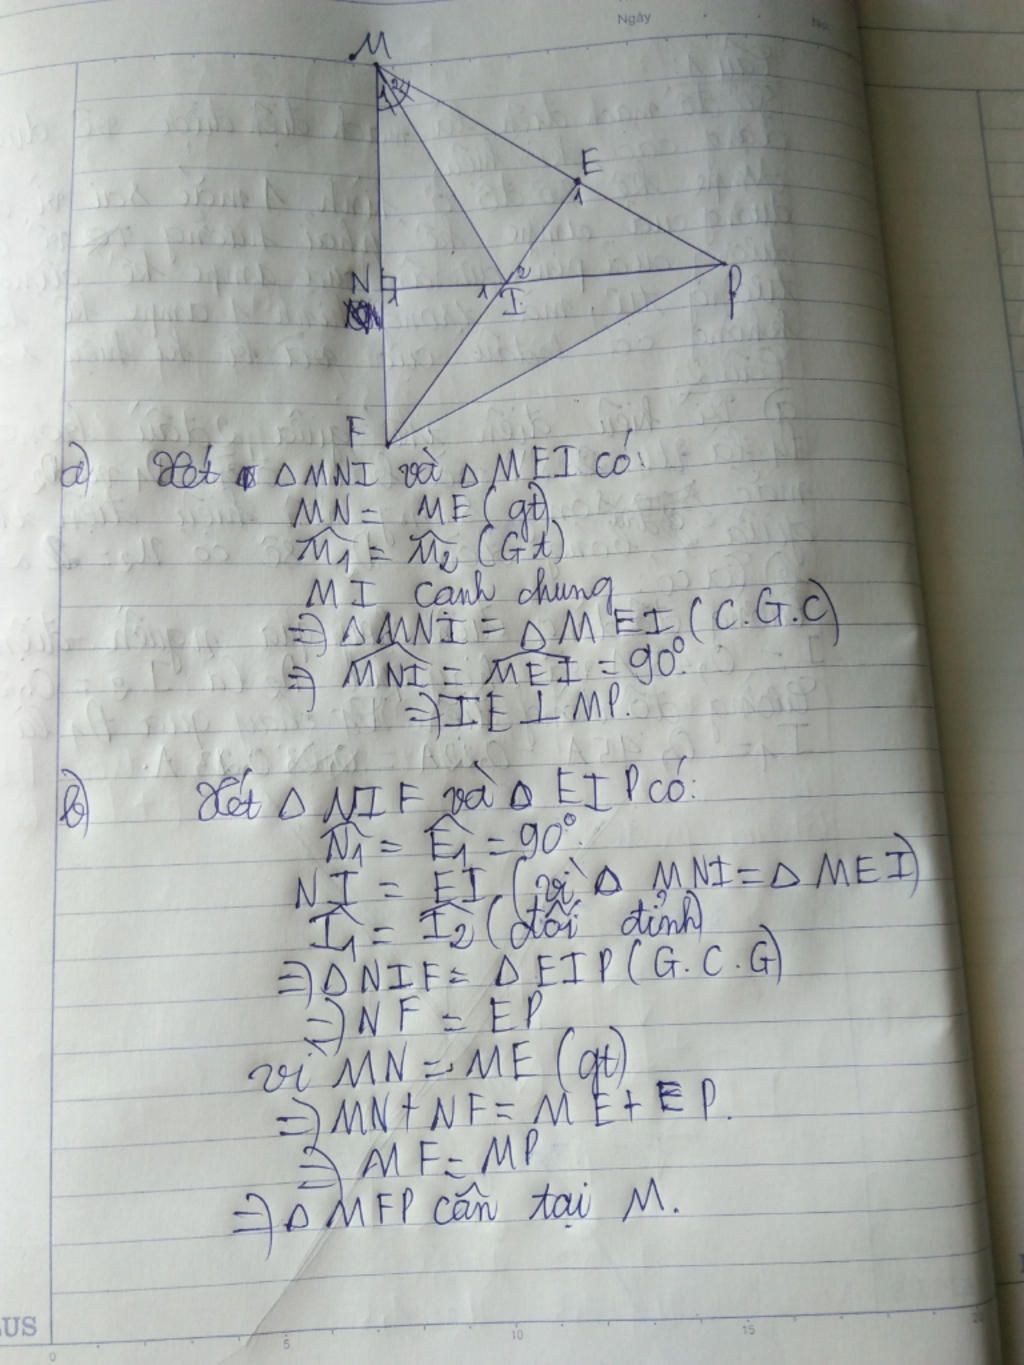 Ngày
No.
M
1 2
E
1
N
1
1 2
I
P
F
a) Xét Δ MNI và Δ MEI có:
MN = ME (gt)
M̂₁ = M̂₂ (Gt)
MI cạnh chung
=> Δ MNI = Δ MEI (C.G.C)
=> MNI = MEI = 90°.
=> IE ⊥ MP.
b) Xét Δ NIF và Δ EIP có:
N̂₁ = Ê₁ = 90°.
NI = EI (vì Δ MNI = Δ MEI)
Î₁ = Î₂ (đối đỉnh)
=> Δ NIF = Δ EIP (G.C.G)
=> NF = EP
vì MN = ME (gt)
=> MN + NF = ME + EP.
=> MF = MP
=> Δ MFP cân tại M.
LUS
0 5 10 15 20